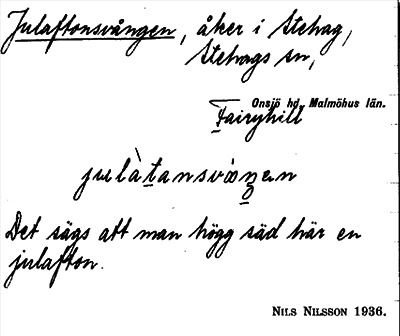 Julaftonsvången, åker i Stehag,
Stehags sn,
Onsjö hd. Malmöhus län.
Fairyhill
Det sägs att man högg säd här en
julafton.
NILS NILSSON 1936.